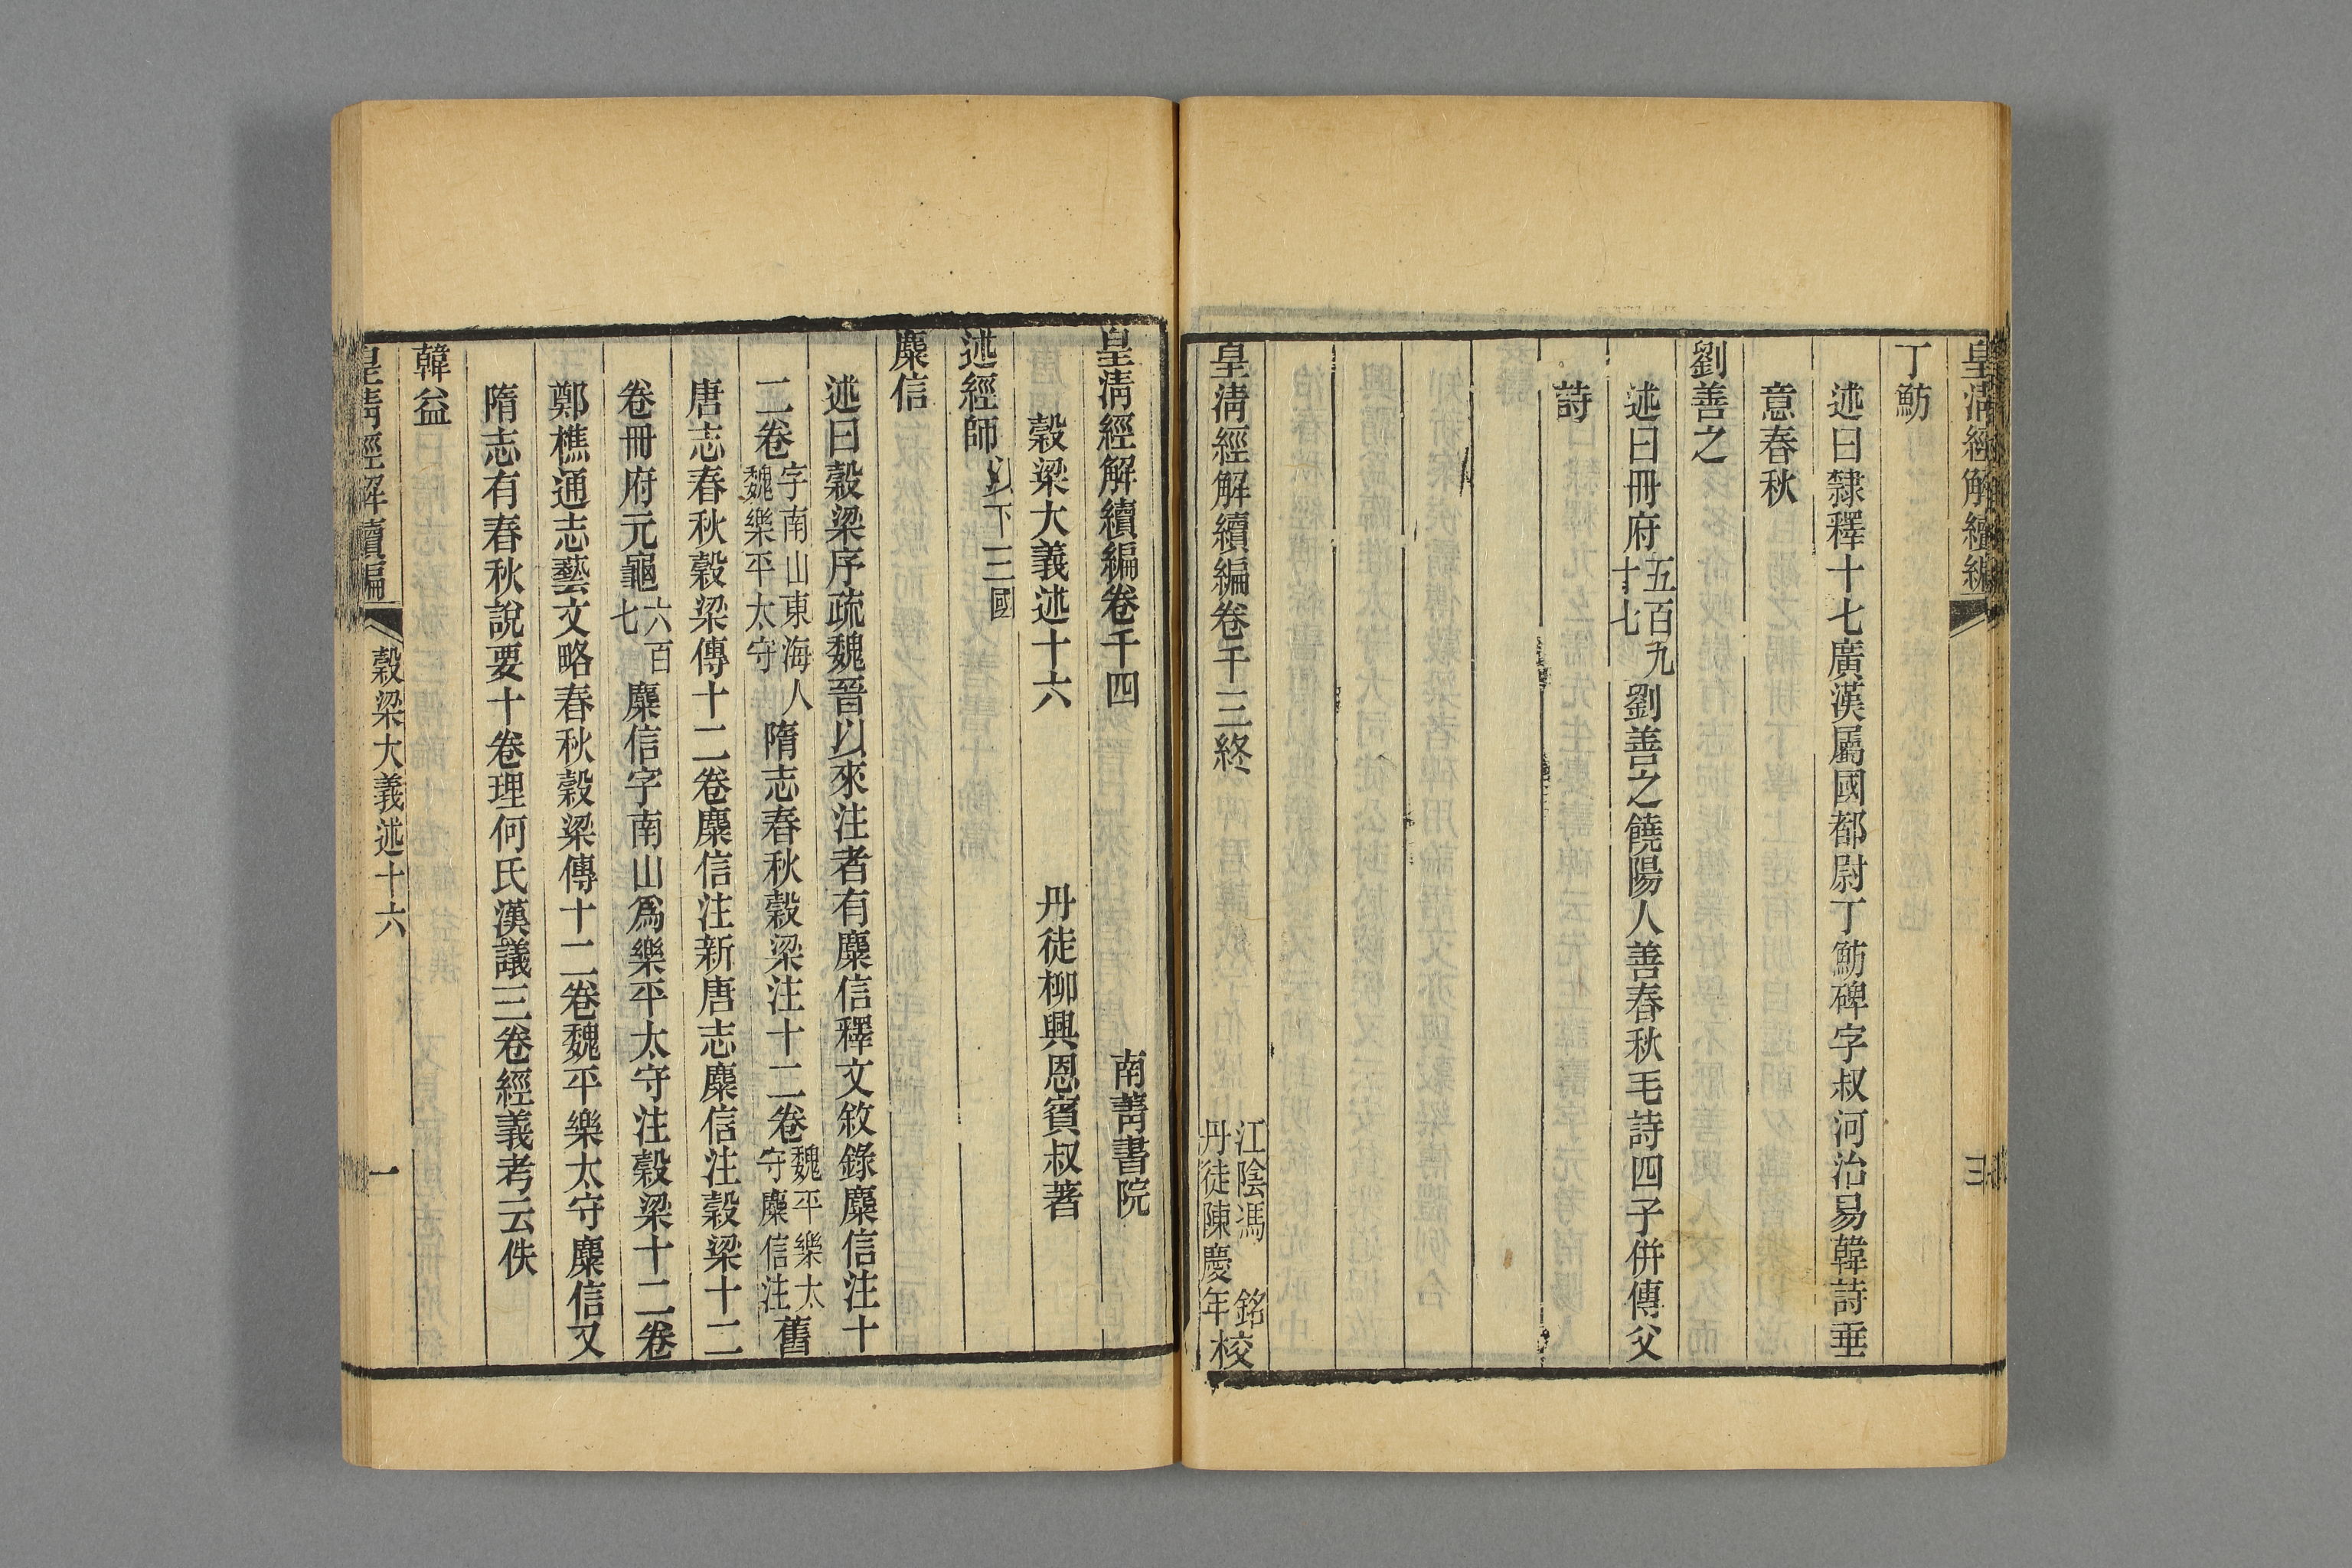 皇清經解續編
三
丁魴
述曰隸釋十七廣漢屬國都尉丁魴碑字叔河治易韓詩垂
意春秋
劉善之
述曰冊府五百九十七劉善之饒陽人善春秋毛詩四子併傳父
詩
皇清經解續編卷千三終
江陰馮銘
丹徒陳慶年校
皇清經解續編卷千四
南菁書院
穀梁大義述十六
丹徒柳興恩賓叔著
述經師以下三國
麋信
述曰穀梁序疏魏晉以來注者有麋信釋文敘錄麋信注十
二卷字南山東海人魏樂平太守隋志春秋穀梁注十二卷魏平樂太守麋信注舊
唐志春秋穀梁傳十二卷麋信注新唐志麋信注穀梁十二
卷冊府元龜六百七麋信字南山爲樂平太守注穀梁十二卷
鄭樵通志藝文略春秋穀梁傳十二卷魏平樂太守麋信又
隋志有春秋說要十卷理何氏漢議三卷經義考云佚
韓益
皇清經解續編
穀梁大義述十六
一